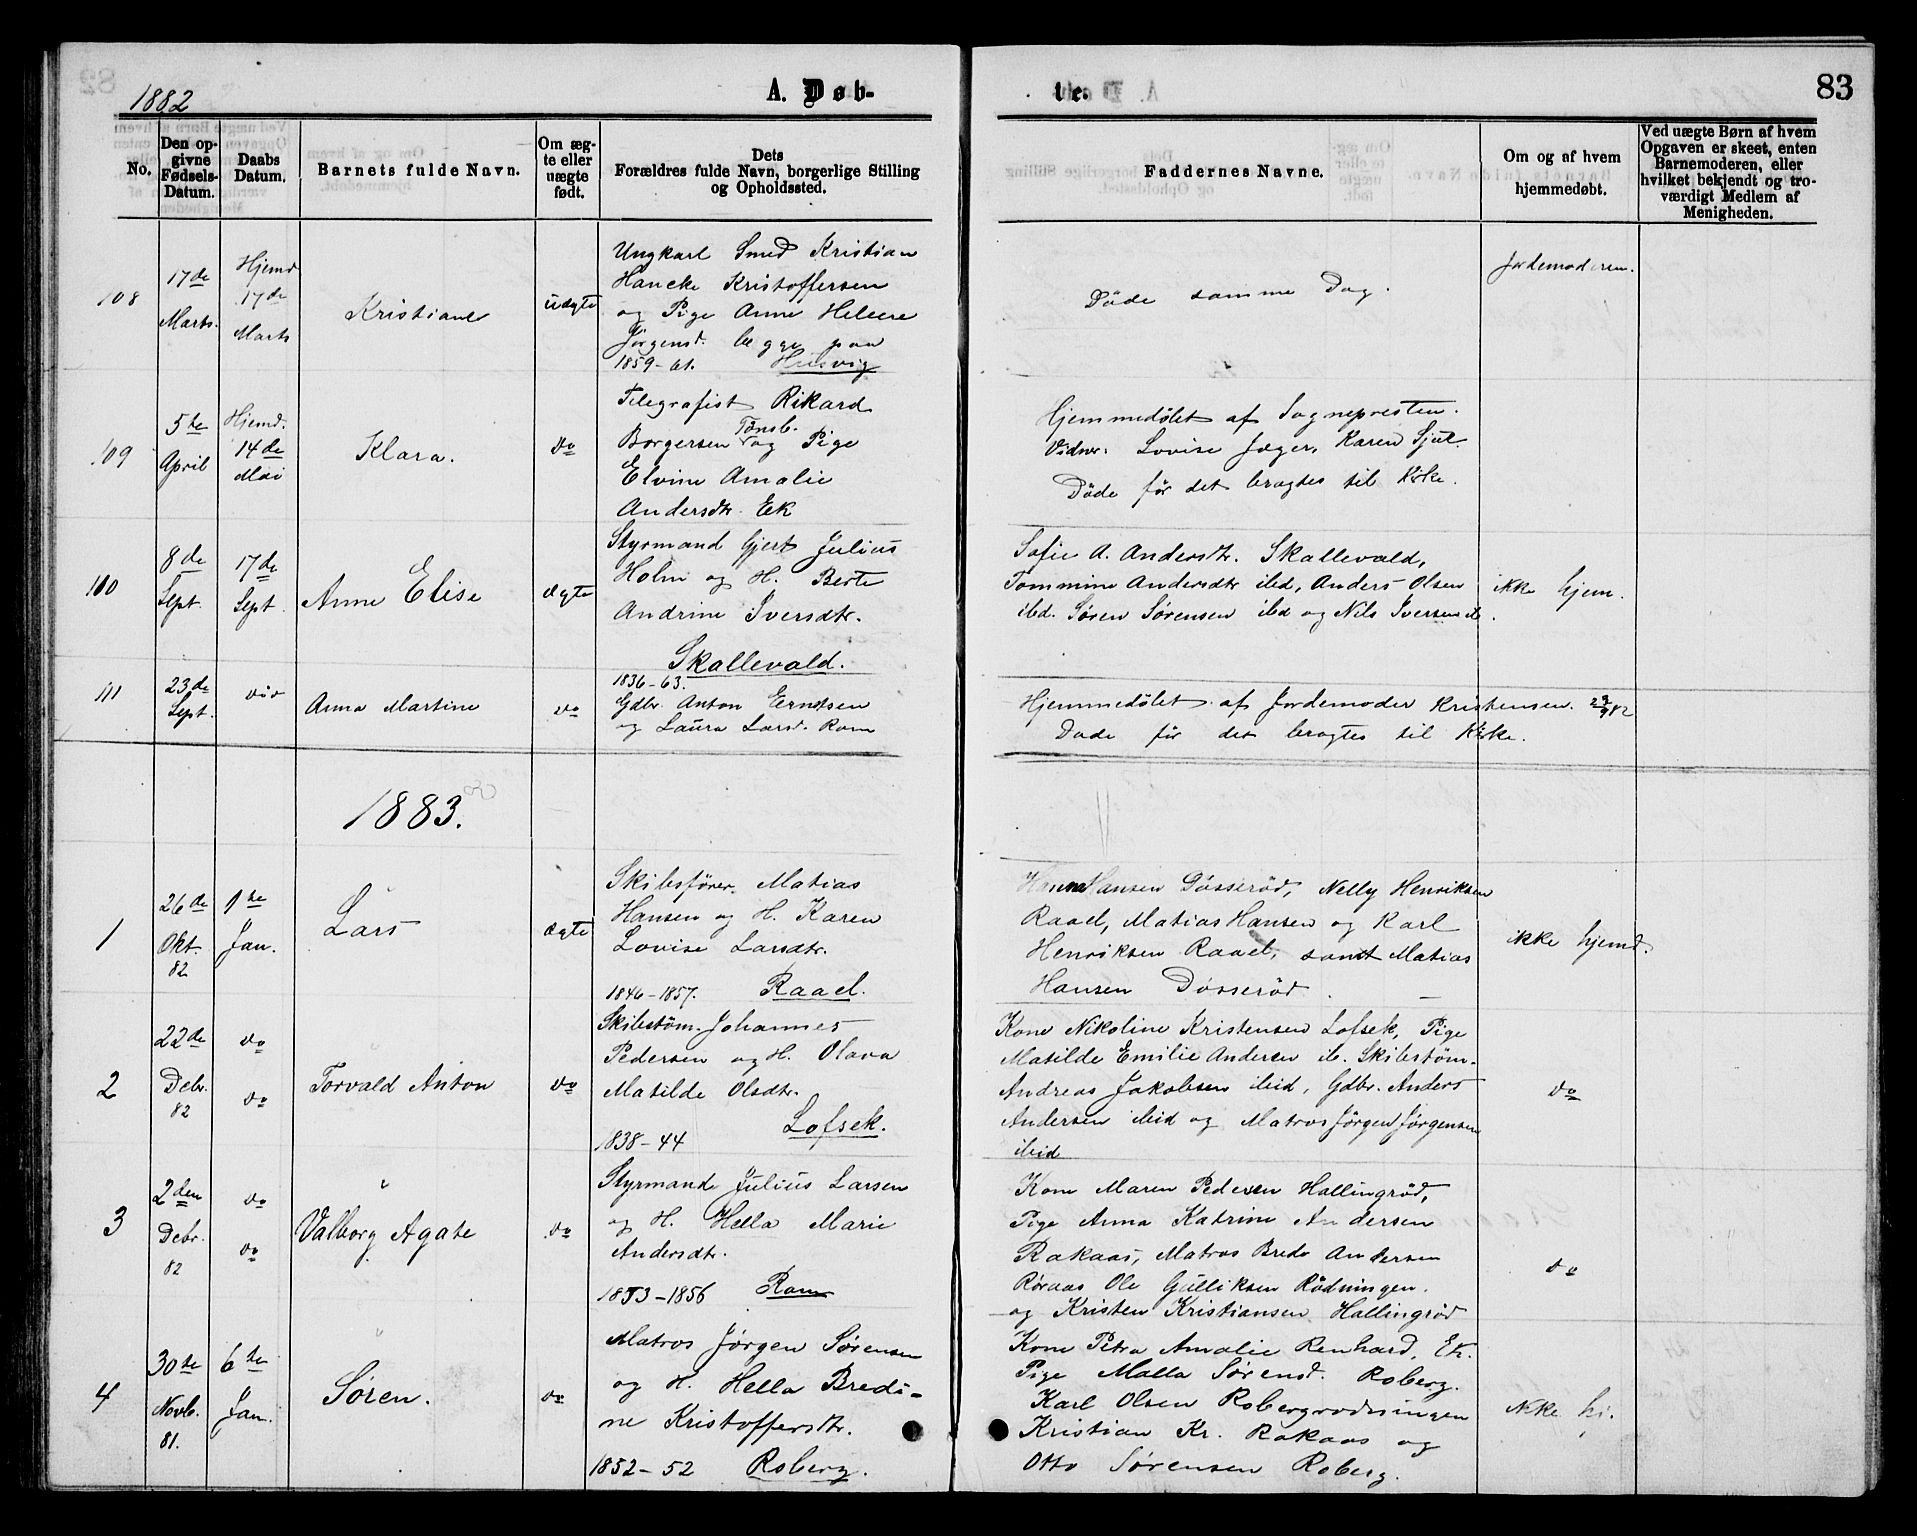 1882
A. Døb-
te.
83
No.
Den op-
givne
Fødsels-
Datum.
Daabs
Datum.
Barnets fulde Navn.
Om æg-
te eller
uægte
født.
Dets
Forældres fulde Navn, borgerlige Stilling
og Opholdssted.
Faddernes Navne.
Om og af hvem
hjemmedøbt.
Ved uægte Børn af hvem
Opgaven er skeet, enten
Barnemoderen, eller
hvilket bekjendt og tro-
værdigt Medlem af
Menigheden.
108
17de
Marts
Hjemd
17de
Marts
Kristiane
uægte
Ungkarl Smed Kristian
Hancke Kristoffersen
og Pige Anne Helene
Jørgensd. begge paa
1859-61. Husvig
Döde samme Dag.
Jordemoderen.
109
5te
April
Hjemd.
14de
Mai
Klara.
do
Telegrafist Rikard
Borgersen Tønsb. og Pige
Elvine Amalie
Andersdtr. Ek
Hjemmedöbt af Sognepresten.
Vidner: Lovise Jæger, Karen
Döde för det bragtes til Kirke.
110
8de
Sept.
17de
Sept.
Anne Elise
ægte
Styrmand Gjert Julius
Holm og H. Berte
Andrine Iversdtr.
Skallevald.
1836-63.
Sofie A. Andersdtr. Skallevald,
Tommine Andersdtr ibd, Anders Olsen
ibd. Søren Sørensen ibd og Nils Iversen ib.
ikke hjem.
111
23de
Sept.
Anna Martine
do
Gdbr. Anton Erntsen
og Laura Larsd. Ram
Hjemmedöbt af Jordemoder Kristensen. 23/9 82
Döde för det bragtes til Kirke.
1883.
1
26de
Okt.
82
1ste
Jan.
Lars
ægte
Skibsförer Matias
Hansen og H. Karen
Lovise Larsdtr.
1846-1857. Raael.
Hanna Hansen Døsseröd, Nelly Henriksen
Raael, Matias Hansen og Karl
Henriksen Raael, samt Matias
Hansen Døsseröd.
ikke hjemd.
2
22de
Debr.
82
do
do
Torvald Anton
do
Skibstöm. Johannes
Pedersen og H. Olava
Matilde Olsdtr.
1838-44 Lofsek.
Kone Nikoline Kristensen Lofsek, Pige
Matilde Emilie Andersen ib. Skibstöm.
Andreas Jakobsen ibid, Gdbr. Anders
Andersen ibid og Matros Jørgen Jørgensen
ibid
do
3
2den
Debr.
82
do
do
Valborg Agate
do
Styrmand Julius Larsen
og H. Hella Marie
Andersdtr.
1853-1856 Ram
Kone Maren Pedersen Hallingröd,
Pige Anna Katrine Andersen
Rakaas, Matros Brede Andersen
Röraas Ole Gulliksen Rødningen.
og Kristen Kristiansen Hallingröd
do
4
30te
Novb.
81.
6te
Jan.
Søren.
do
Matros Jørgen Sørensen
og H. Hella Bredi-
ne Kristoffersdtr.
1852-52 Roberg.
Kone Petra Amalie Renhard, Ek.
Pige Malla Sørensd. Roberg.
Karl Olsen Robergrødningen
Kristian Kr. Rakaas og
Otto Sørensen Roberg.
ikke hj.